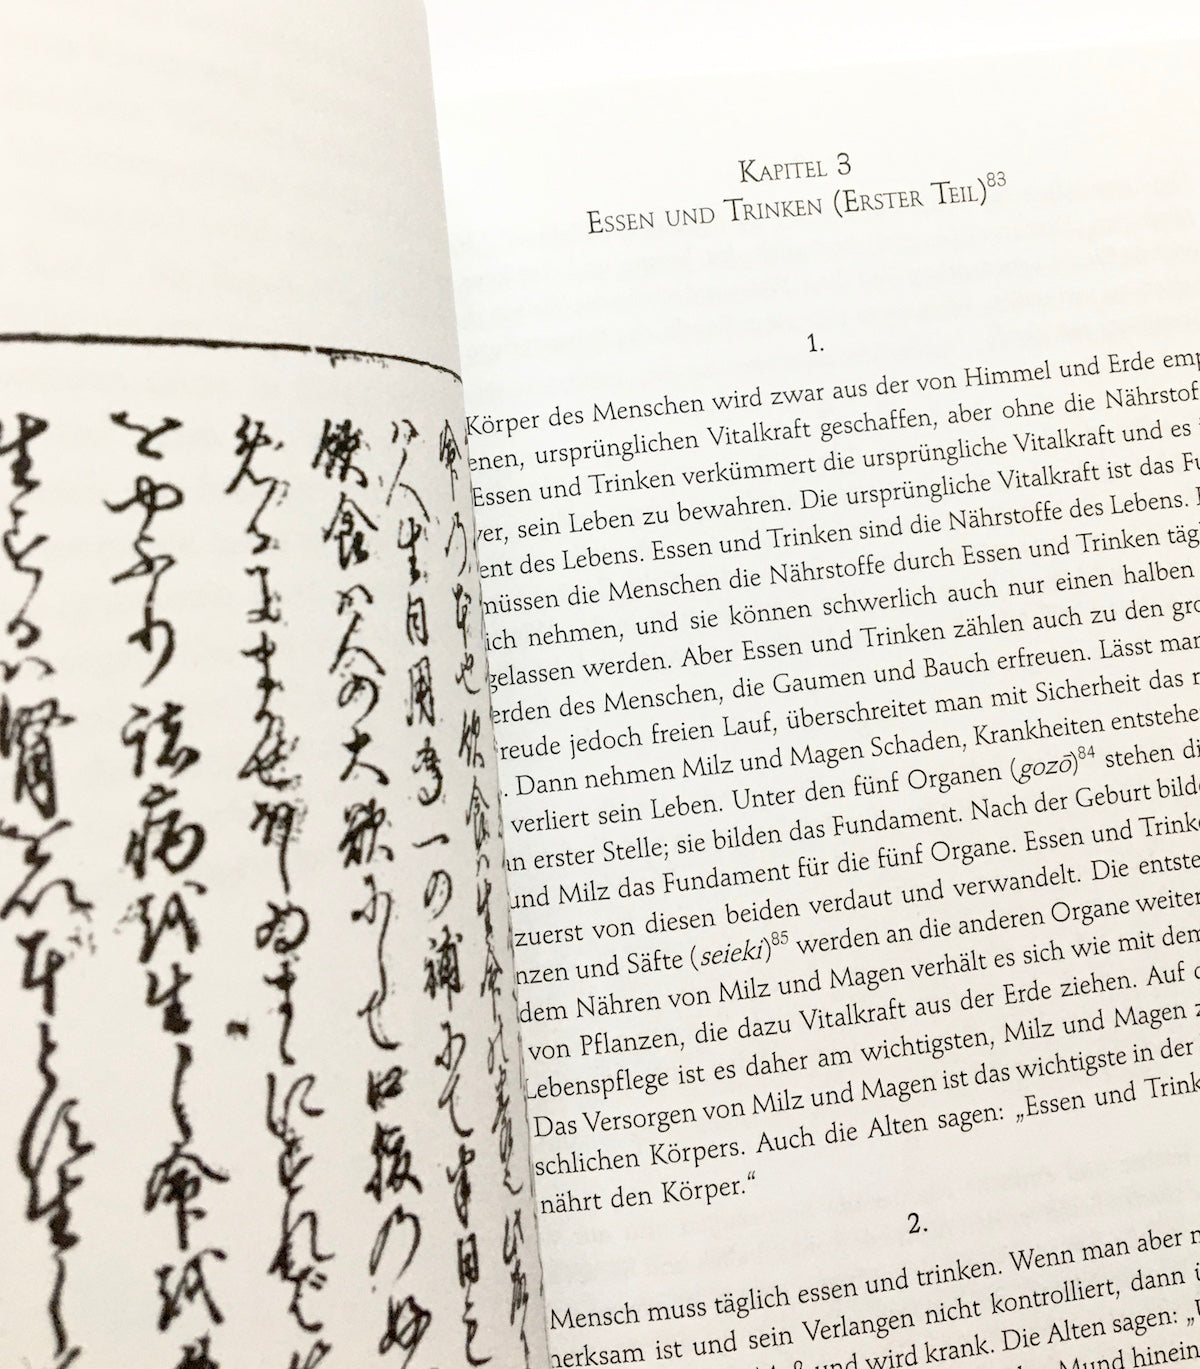 命の本也飲食ハ生命の養也此故
ハ人生日用専一の補にて半日も
飲食ハ人の大欲にして口腹の好
をやふり諸病を生し命を
生するハ腎を以本とす生し
KAPITEL 3
ESSEN UND TRINKEN (ERSTER TEIL)83
1.
Körper des Menschen wird zwar aus der von Himmel und Erde emp
enen, ursprünglichen Vitalkraft geschaffen, aber ohne die Nährstof
Essen und Trinken verkümmert die ursprüngliche Vitalkraft und es
er, sein Leben zu bewahren. Die ursprüngliche Vitalkraft ist das Fu
ent des Lebens. Essen und Trinken sind die Nährstoffe des Lebens.
müssen die Menschen die Nährstoffe durch Essen und Trinken täg
ich nehmen, und sie können schwerlich auch nur einen halben
gelassen werden. Aber Essen und Trinken zählen auch zu den gro
erden des Menschen, die Gaumen und Bauch erfreuen. Lässt man
reude jedoch freien Lauf, überschreitet man mit Sicherheit das
. Dann nehmen Milz und Magen Schaden, Krankheiten entstehe
verliert sein Leben. Unter den fünf Organen (gozō)84 stehen di
an erster Stelle; sie bilden das Fundament. Nach der Geburt bild
und Milz das Fundament für die fünf Organe. Essen und Trinke
zuerst von diesen beiden verdaut und verwandelt. Die entste
nzen und Säfte (seieki)85 werden an die anderen Organe weiter
dem Nähren von Milz und Magen verhält es sich wie mit dem
von Pflanzen, die dazu Vitalkraft aus der Erde ziehen. Auf
Lebenspflege ist es daher am wichtigsten, Milz und Magen z
Das Versorgen von Milz und Magen ist das wichtigste in der
schlichen Körpers. Auch die Alten sagen: „Essen und Trink
nährt den Körper.“
2.
Mensch muss täglich essen und trinken. Wenn man aber
merksam ist und sein Verlangen nicht kontrolliert, dann
und wird krank. Die Alten sagen: „
Mund hinein